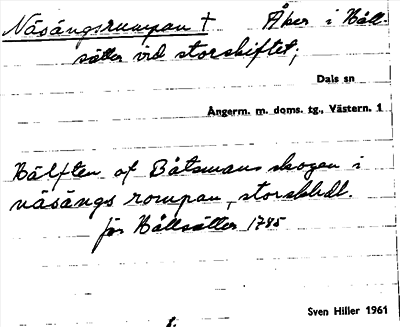 Näsängsrumpan † Åker i Håll-
sätter vid storskiftet;
Dals sn
Ångerm. m. doms. tg., Västern. 1
Hälften af Båtsmans skogen i
näsängs rompan, storskbdl.
för Hållsätter 1785
Sven Hiller 1961